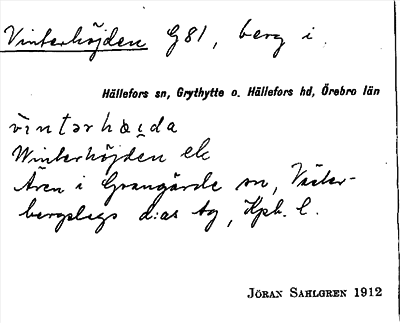 Vinterhöjden G81, berg i
Hällefors sn, Grythytte o. Hällefors hd, Örebro län
vintərhæida
Winterhöjden ek
Åren i Grangärde sn, Väster-
bergslags d:as tg, Kpb. l.
JÖRAN SAHLGREN 1912